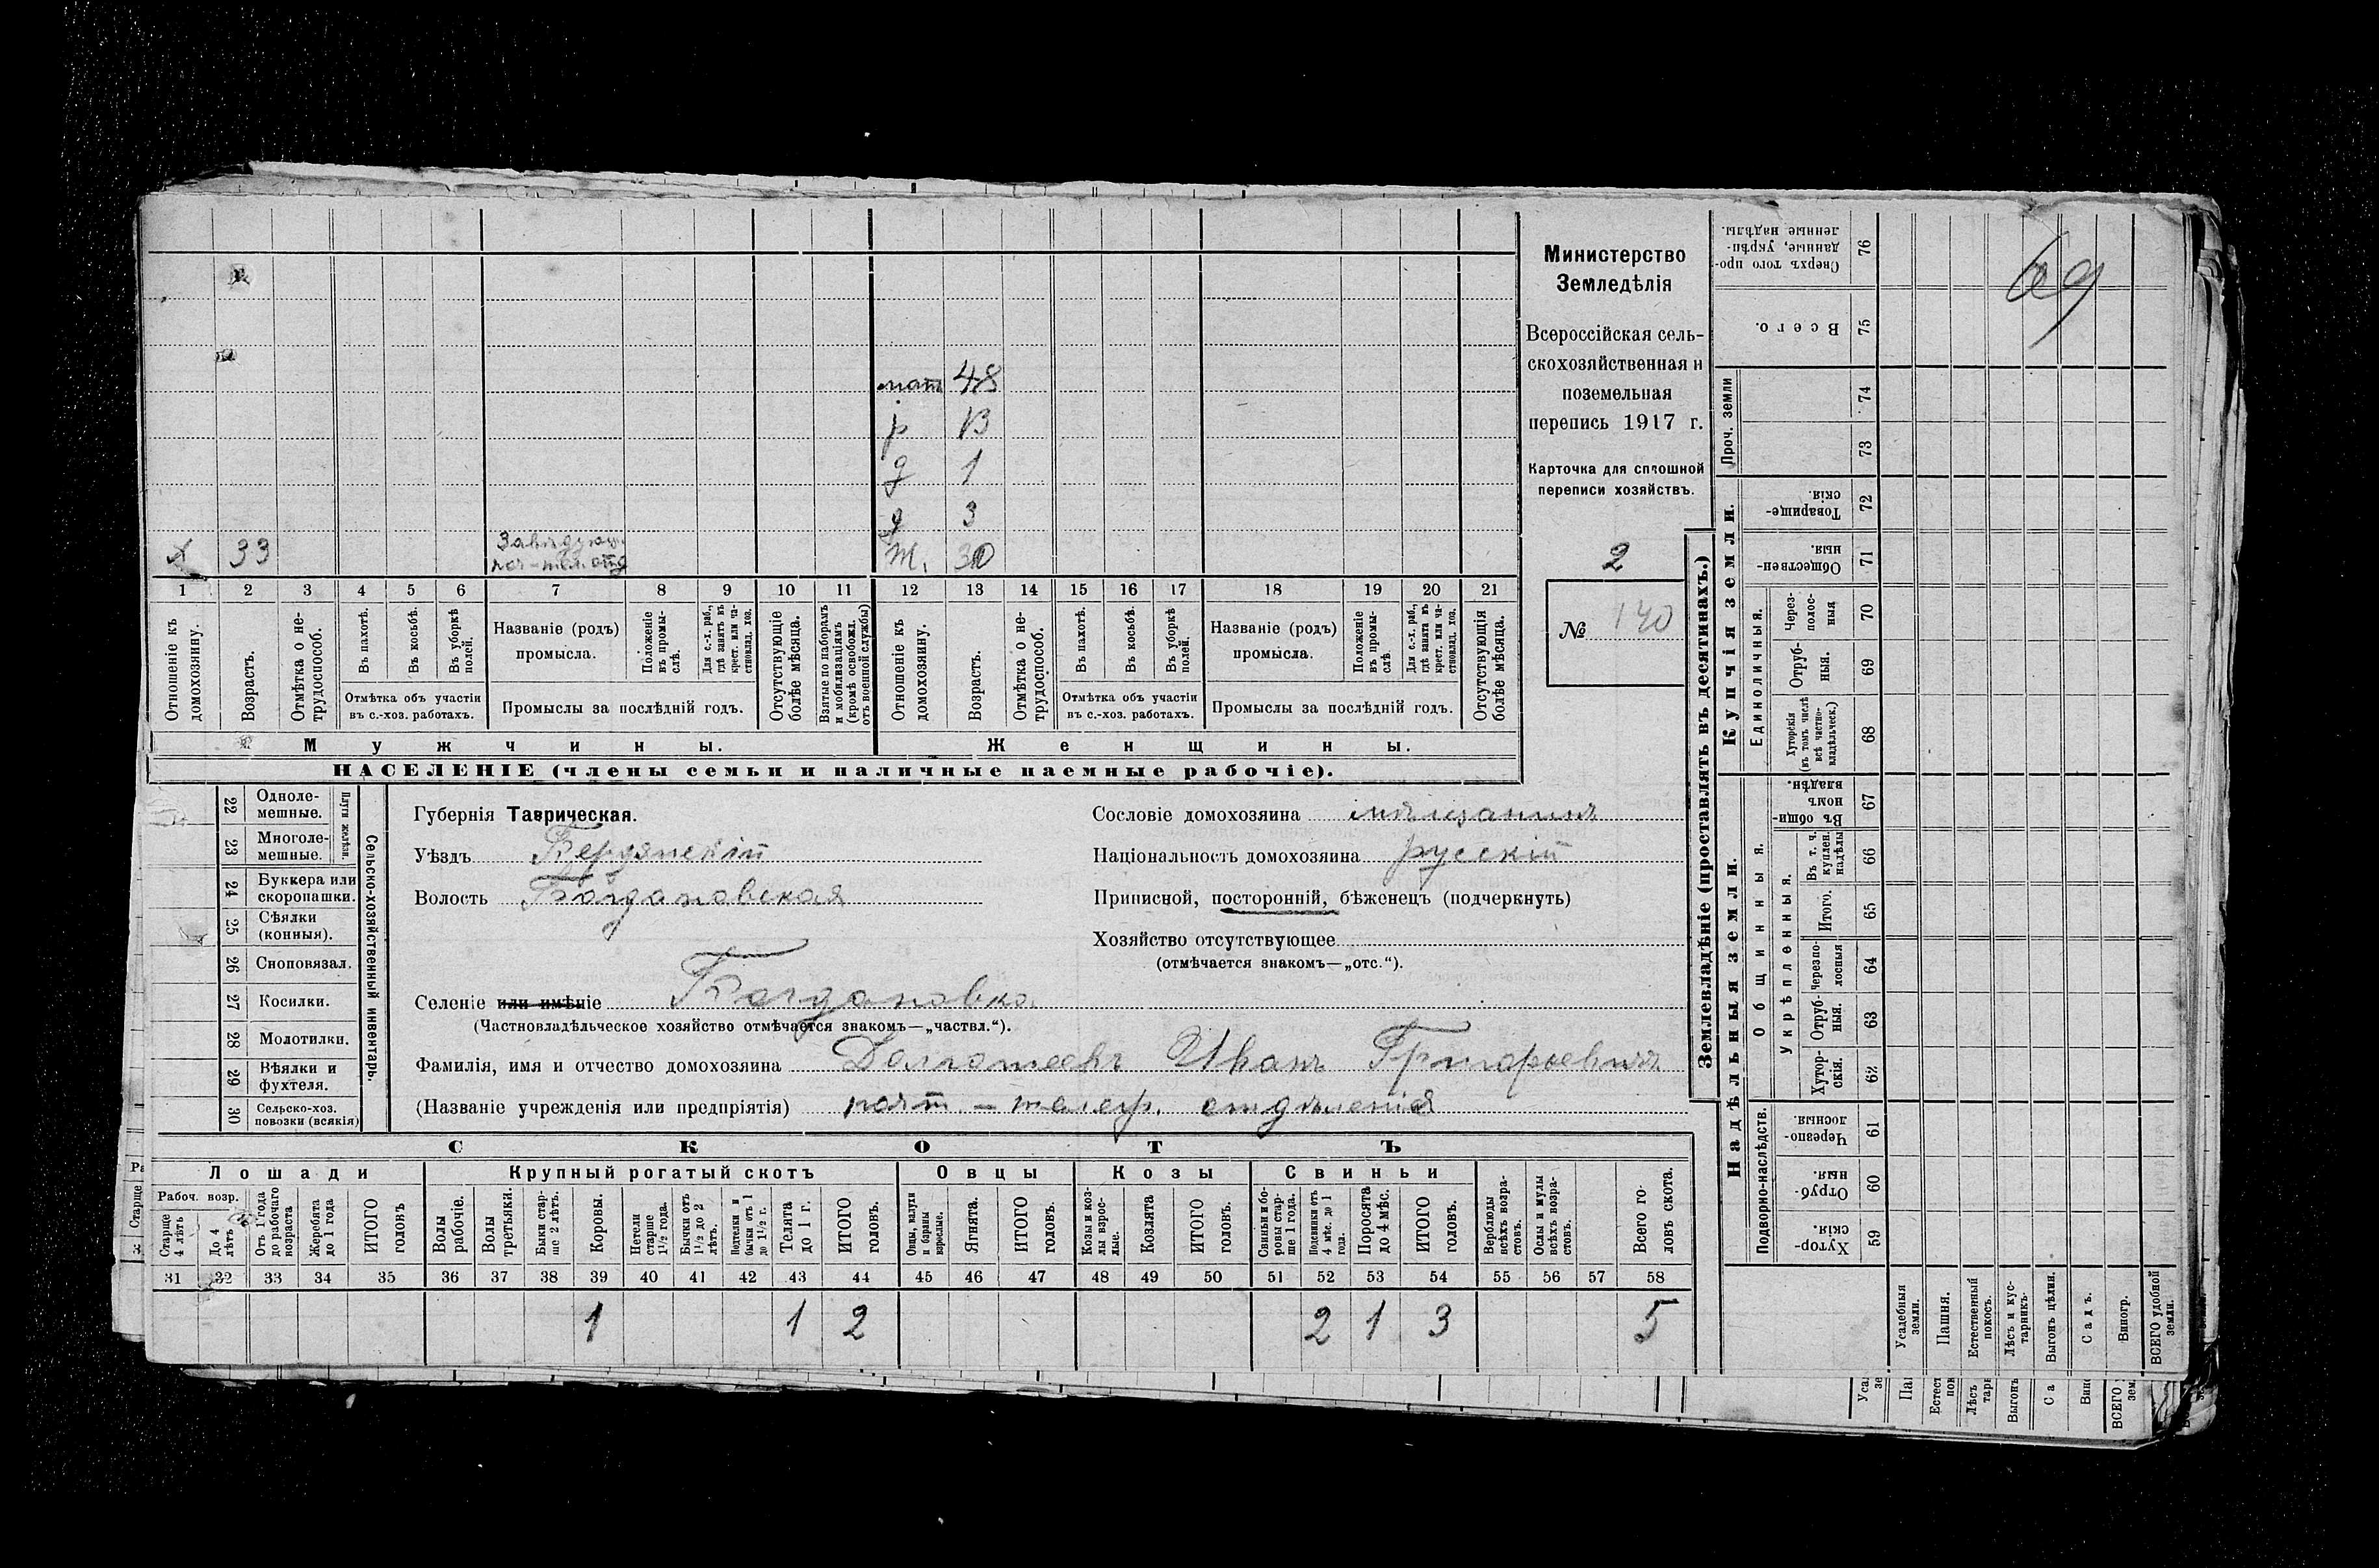 мат 48
р 13
д 1
д 3
х 33 Завѣдующ. поч-тел. отд ж. 30
1 2 3 4 5 6 7 8 9 10 11 12 13 14 15 16 17 18 19 20 21
Отношеніе къ домохозяину.
Возрастъ.
Отмѣтка о не-трудоспособ.
Въ пахотѣ.
Въ косьбѣ.
Въ уборкѣ полей.
Отмѣтка объ участіи
въ с.-хоз. работахъ.
Названіе (родъ)
промысла.
Положеніе въ промы-слѣ.
Для с.-х. раб., гдѣ занятъ въ крест. или ча-стновлад. хоз.
Промыслы за послѣдній годъ.
Отсутствующіе болѣе мѣсяца.
Взятые по наборамъ и мобилизаціямъ (кромѣ освобожд. отъ военной службы)
Отношеніе къ домохозяину.
Возрастъ.
Отмѣтка о не-трудоспособ.
Въ пахотѣ.
Въ косьбѣ.
Въ уборкѣ полей.
Отмѣтка объ участіи
въ с.-хоз. работахъ.
Названіе (родъ)
промысла.
Положеніе въ промы-слѣ
Для с.-х. раб., гдѣ занята въ крест. или ча-стновлад. хоз.
Промыслы за послѣдній годъ.
Отсутствующія болѣе мѣсяца.
Мужчины.
Женщины.
НАСЕЛЕНІЕ (члены семьи и наличные наемные рабочіе).
Министерство
Земледѣлія
Всероссійская сель-
скохозяйственная и
поземельная
перепись 1917 г.
Карточка для сплошной
переписи хозяйствъ.
2
№ 140
22 Одноле-мешные.
23 Многоле-мешные.
Плуги желѣзн.
24 Буккера или скоропашки.
25 Сѣялки (конныя).
26 Сноповязал.
27 Косилки.
28 Молотилки.
29 Вѣялки и фухтеля.
30 Сельско-хоз. повозки (всякія)
Сельско-хозяйственный инвентарь.
Губернія Таврическая.
Уѣздъ Бердянскій
Волость Богдановская
Сословіе домохозяина мѣщанинъ
Національность домохозяина русскій
Приписной, посторонній, бѣженецъ (подчеркнуть)
Хозяйство отсутствующее
(отмѣчается знакомъ—„отс.“).
Селеніе или имѣніе Богдановка
(Частновладѣльческое хозяйство отмѣчается знакомъ—„частвл.“).
Фамилія, имя и отчество домохозяина Иванъ Григорьевичъ
(Названіе учрежденія или предпріятія) почт.—телегр. отдѣленія
СКОТЪ
Лошади
Крупный рогатый скотъ
Овцы
Козы
Свиньи
Рабоч. возр.
Старше 4 лѣтъ
До 4 лѣтъ
Отъ 1 года до рабочаго возраста
Жеребята до 1 года
ИТОГО головъ
Волы рабочіе.
Волы третьяки.
Быки стар-ше 2 лѣтъ.
Коровы.
Нетели старше 1½ года.
Бычки отъ 1½ до 2 лѣтъ.
Нетелки и бычки отъ 1 до 1½ г.
Телята до 1 г.
ИТОГО головъ.
Овцы, валухи и бараны взрослые.
Ягнята.
ИТОГО головъ.
Козы и коз-лы взрос-лые.
Козлята
ИТОГО головъ.
Свиньи и бо-ровы стар-ше 1 года.
Подсвинки отъ 4 мѣс. до 1 года.
Поросята до 4 мѣс.
ИТОГО головъ.
Верблюды всѣхъ возра-стовъ.
Ослы и мулы всѣхъ возра-стовъ.
Всего го-ловъ скота.
31 32 33 34 35 36 37 38 39 40 41 42 43 44 45 46 47 48 49 50 51 52 53 54 55 56 57 58
1 1 2 2 1 3 5
Землевладѣніе (проставлять въ десятинахъ.)
Надѣльныя земли.
Купчія земли.
Проч. земли
Подворно-наслѣдств.
Общинныя.
Укрѣпленныя.
Единоличныя.
Сверхъ того про-данные, укрѣп-ленные надѣлы. 76
Всего. 75
74
73
Товарище-скія. 72
Обществен-ныя. 71
Через-полос-ныя 70
Отруб-ныя. 69
Хуторскія (въ томъ числѣ всѣ частно-владѣльческ.) 68
Въ общин-номъ владѣн. 67
Въ т. ч. куплен. надѣлы 66
Итого. 65
Черезпо-лосныя 64
Отруб-ныя. 63
Хутор-скія. 62
Черезпо-лосныя 61
Отруб-ныя. 60
Хутор-скія. 59
Усадебныя земли.
Пашня.
Естественный покосъ.
Лѣсъ и кус-тарникъ.
Выгонъ цѣлин.
Садъ.
Виногр.
ВСЕГО удобной земли.
69